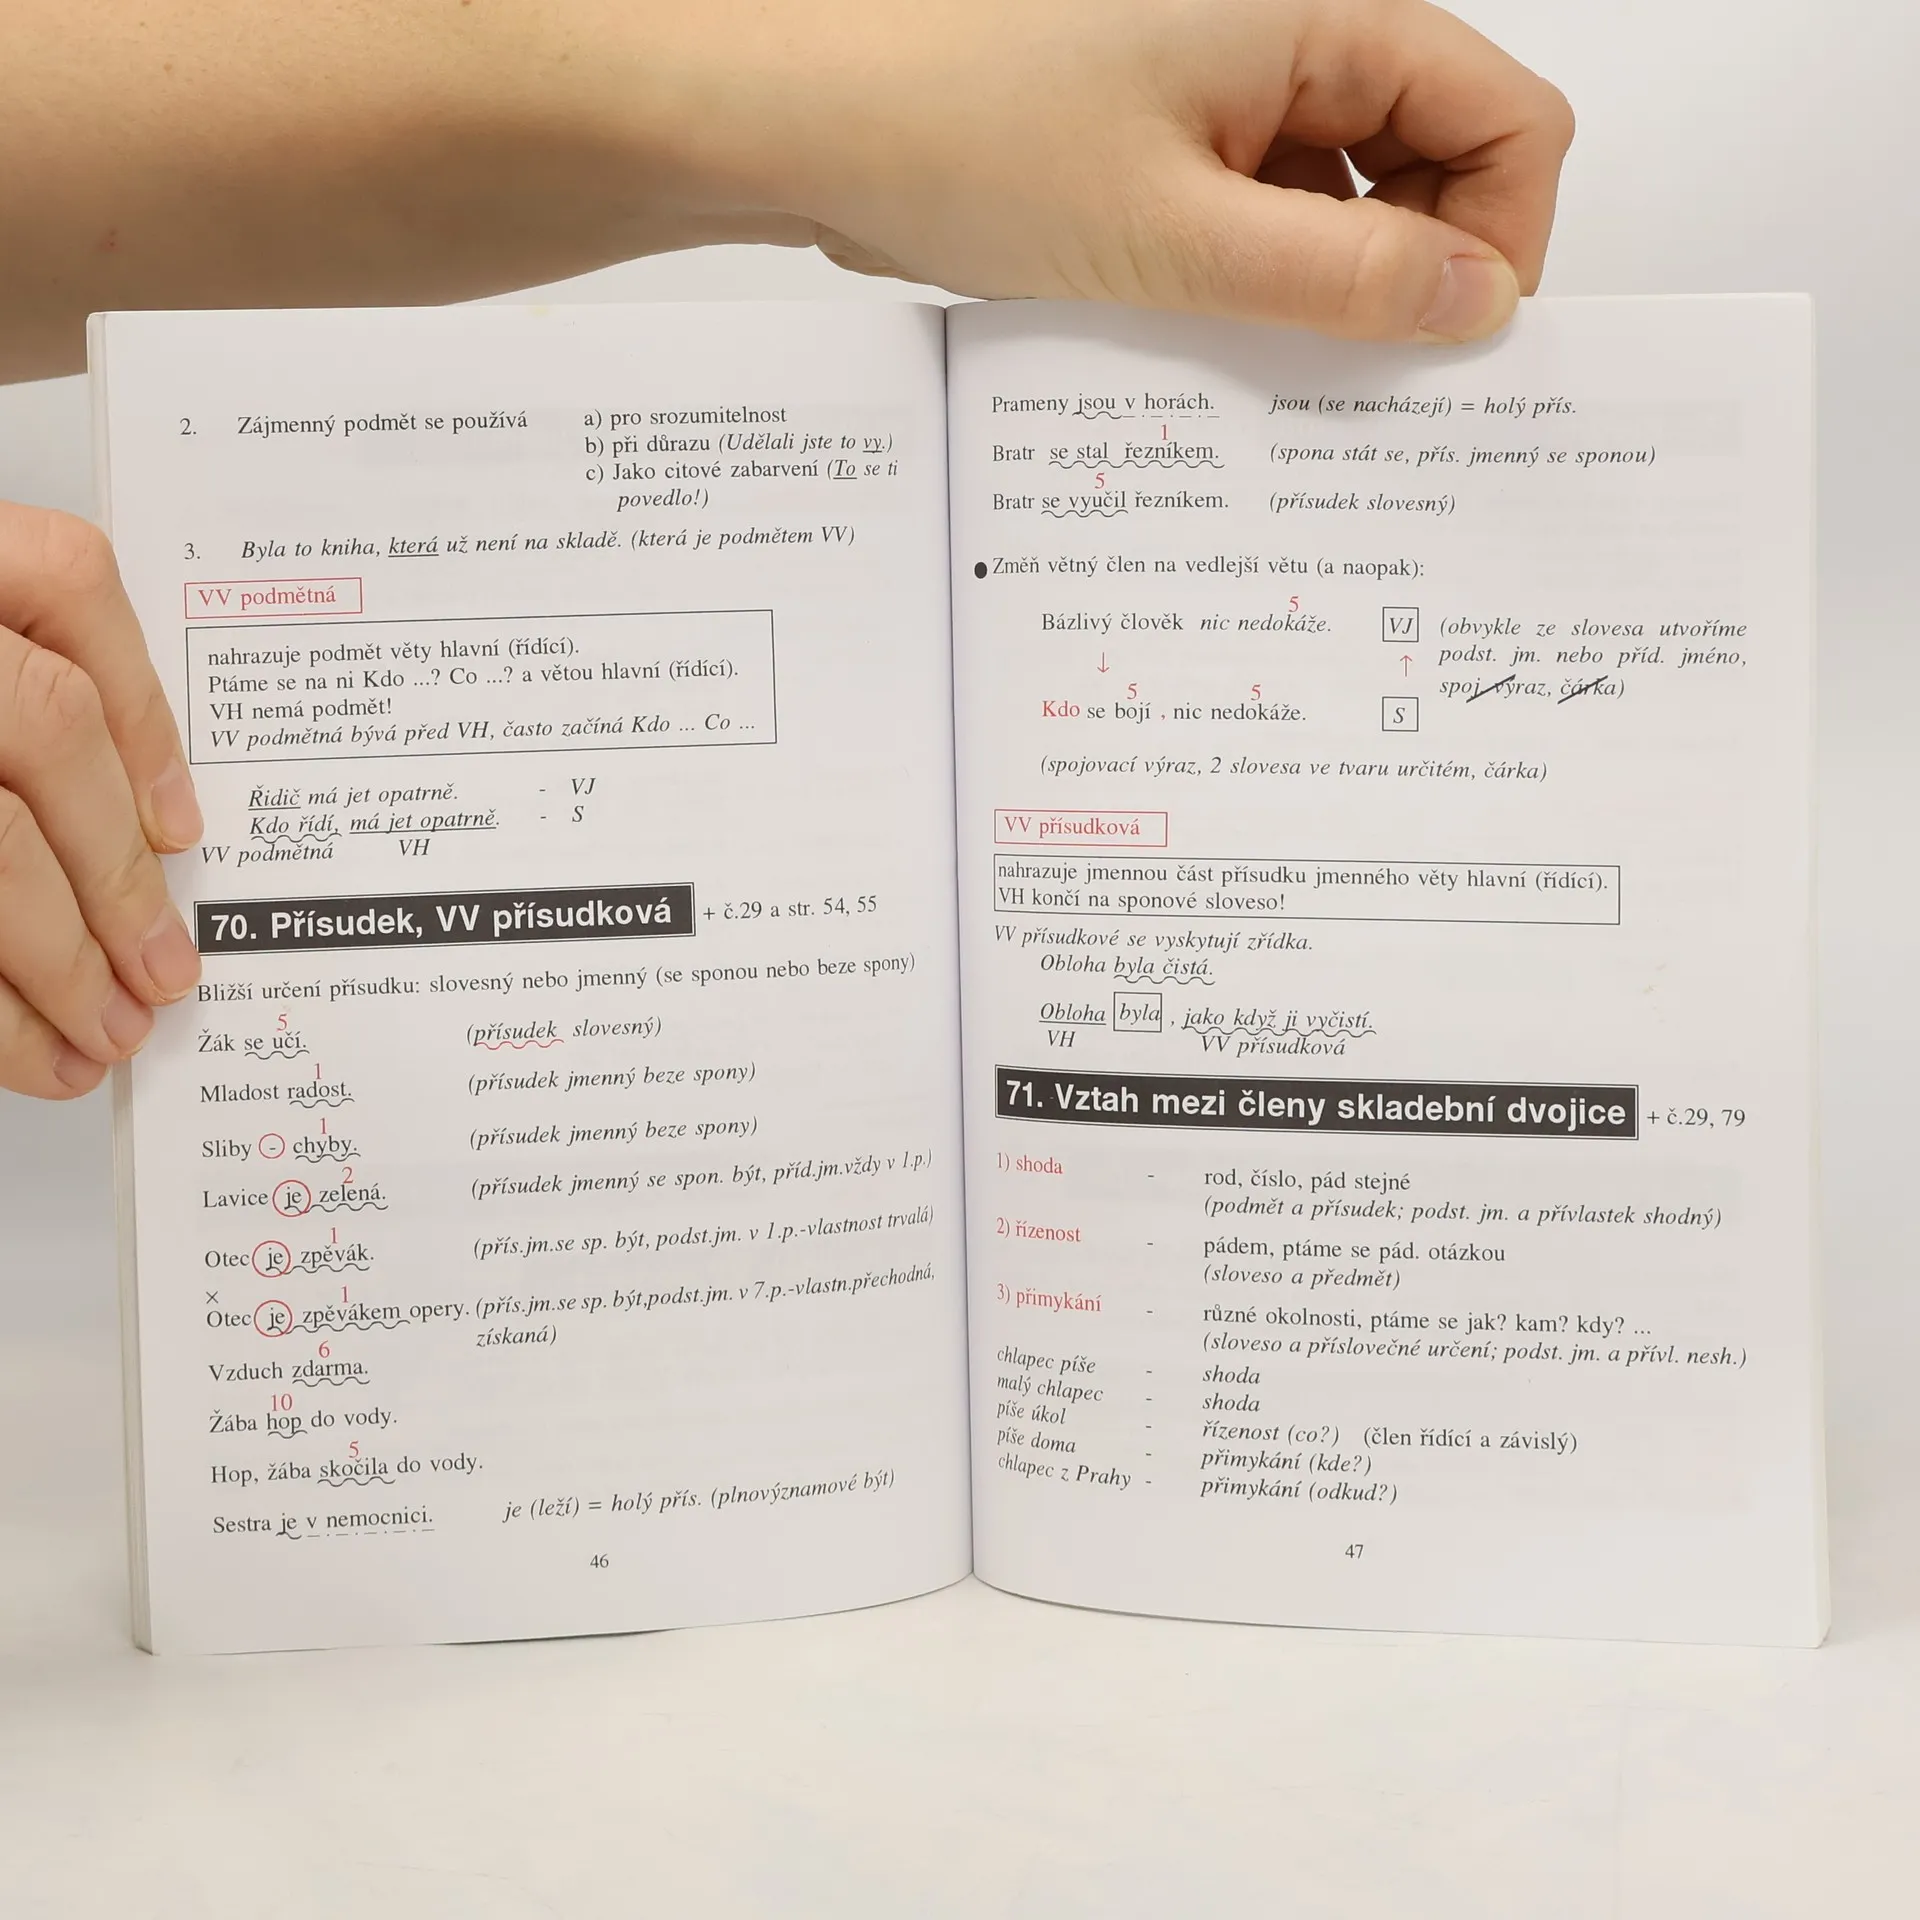 2. Zájmenný podmět se používá a) pro srozumitelnost
b) při důrazu (Udělali jste to vy.)
c) Jako citové zabarvení (To se ti
povedlo!)
3. Byla to kniha, která už není na skladě. (která je podmětem VV)
VV podmětná
nahrazuje podmět věty hlavní (řídící).
Ptáme se na ni Kdo ...? Co ...? a větou hlavní (řídící).
VH nemá podmět!
VV podmětná bývá před VH, často začíná Kdo ... Co ...
Řidič má jet opatrně. - VJ
Kdo řídí, má jet opatrně. - S
VV podmětná VH
70. Přísudek, VV přísudková + č.29 a str. 54, 55
Bližší určení přísudku: slovesný nebo jmenný (se sponou nebo beze spony)
5
Žák se učí. (přísudek slovesný)
1
Mladost radost. (přísudek jmenný beze spony)
1
Sliby - chyby. (přísudek jmenný beze spony)
2
Lavice je zelená. (přísudek jmenný se spon. být, příd.jm.vždy v 1.p.)
1
Otec je zpěvák. (přís.jm.se sp. být, podst.jm. v 1.p.-vlastnost trvalá)
× 1
Otec je zpěvákem opery. (přís.jm.se sp. být,podst.jm. v 7.p.-vlastn.přechodná,
získaná)
6
Vzduch zdarma.
10
Žába hop do vody.
5
Hop, žába skočila do vody.
Sestra je v nemocnici. je (leží) = holý přís. (plnovýznamové být)
46
Prameny jsou v horách. jsou (se nacházejí) = holý přís.
1
Bratr se stal řezníkem. (spona stát se, přís. jmenný se sponou)
5
Bratr se vyučil řezníkem. (přísudek slovesný)
● Změň větný člen na vedlejší větu (a naopak):
5
Bázlivý člověk nic nedokáže. VJ (obvykle ze slovesa utvoříme
↓ ↑ podst. jm. nebo příd. jméno,
5 5 spoj. výraz, čárka)
Kdo se bojí , nic nedokáže. S
(spojovací výraz, 2 slovesa ve tvaru určitém, čárka)
VV přísudková
nahrazuje jmennou část přísudku jmenného věty hlavní (řídící).
VH končí na sponové sloveso!
VV přísudkové se vyskytují zřídka.
Obloha byla čistá.
Obloha byla , jako když ji vyčistí.
VH VV přísudková
71. Vztah mezi členy skladební dvojice + č.29, 79
1) shoda - rod, číslo, pád stejné
(podmět a přísudek; podst. jm. a přívlastek shodný)
2) řízenost - pádem, ptáme se pád. otázkou
(sloveso a předmět)
3) přimykání - různé okolnosti, ptáme se jak? kam? kdy? ...
(sloveso a příslovečné určení; podst. jm. a přívl. nesh.)
chlapec píše - shoda
malý chlapec - shoda
píše úkol - řízenost (co?) (člen řídící a závislý)
píše doma - přimykání (kde?)
chlapec z Prahy - přimykání (odkud?)
47